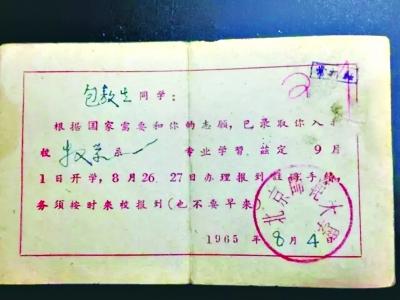 包敖生 同学：
根据国家需要和你的志愿，已录取你入我
校 教育系一 专业学习，兹定 9月
1日开学，8月26、27日办理报到注册手续，
务须按时来校报到（也不要早来）。
北京师范大学
1965 年 8 月 4 日